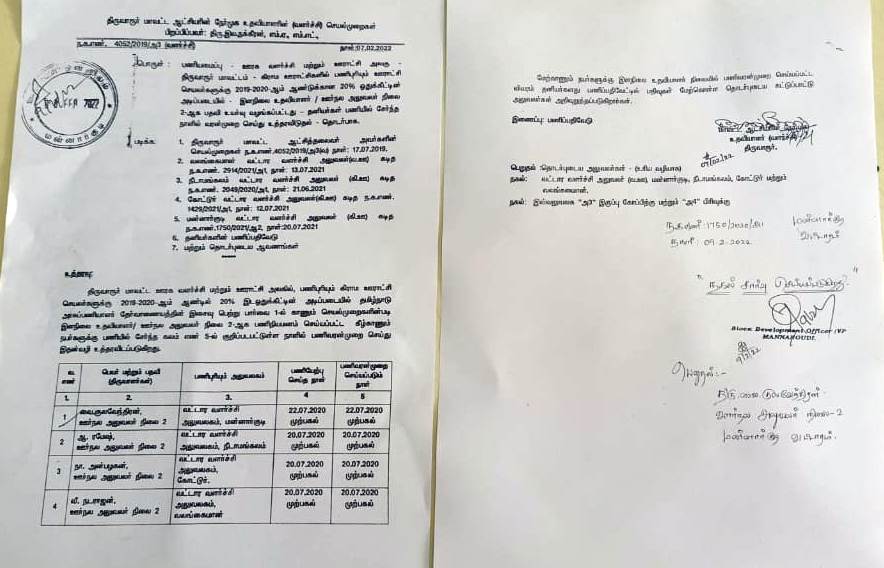 திருவாரூர் மாவட்ட ஆட்சியரின் நேர்முக உதவியாளரின் (வளர்ச்சி) செயல்முறைகள்
பிறப்பிப்பவர்: திரு.இலகுக்கிரன், எம்.ஏ., எம்.எட்.,
ந.க.எண். 4052/2019/அ3 (வளர்ச்சி) நாள்:07.02.2022
பொருள் : பணியமைப்பு - ஊரக வளர்ச்சி மற்றும் ஊராட்சி அலகு -
திருவாரூர் மாவட்டம் - கிராம ஊராட்சிகளில் பணிபுரியும் ஊராட்சி
செயலர்களுக்கு 2019-2020-ஆம் ஆண்டுக்கான 20% ஒதுக்கீட்டின்
அடிப்படையில் - இளநிலை உதவியாளர் / ஊர்நல அலுவலர் நிலை
2-ஆக பதவி உயர்வு வழங்கப்பட்டது - தனியர்கள் பணியில் சேர்ந்த
நாளில் வரன்முறை செய்து உத்தரவிடுதல் - தொடர்பாக.
மன்னார்குடி
படிக்க:
1. திருவாரூர் மாவட்ட ஆட்சித்தலைவர் அவர்களின்
செயல்முறைகள் ந.க.எண்.4052/2019/அ3(வ) நாள்: 17.07.2019.
2. வலங்கைமான் வட்டார வளர்ச்சி அலுவலர்(வ.ஊ) கடித
ந.க.எண். 2914/2021/அ1, நாள்: 13.07.2021
3. நீடாமங்கலம் வட்டார வளர்ச்சி அலுவலர் (கி.ஊ) கடித
ந.க.எண். 2049/2020/அ1, நாள்: 21.06.2021
4. கோட்டூர் வட்டார வளர்ச்சி அலுவலர்(கி.ஊ) கடித ந.க.எண்.
1429/2021/அ1, நாள்: 12.07.2021
5. மன்னார்குடி வட்டார வளர்ச்சி அலுவலர் (கி.ஊ) கடித
ந.க.எண்.1750/2021/அ2, நாள்:20.07.2021
6. தனியர்களின் பணிப்பதிவேடு
7. மற்றும் தொடர்புடைய ஆவணங்கள்
*****
உத்தரவு:
திருவாரூர் மாவட்ட ஊரக வளர்ச்சி மற்றும் ஊராட்சி அலகில், பணிபுரியும் கிராம ஊராட்சி
செயலர்களுக்கு 2019-2020-ஆம் ஆண்டில் 20% இடஒதுக்கீட்டின் அடிப்படையில் தமிழ்நாடு
அரசுப்பணியாளர் தேர்வாணையத்தின் இசைவு பெற்று பார்வை 1-ல் காணும் செயல்முறைகளின்படி
இளநிலை உதவியாளர்/ ஊர்நல அலுவலர் நிலை 2-ஆக பணிநியமனம் செய்யப்பட்ட கீழ்காணும்
நபர்களுக்கு பணியில் சேர்ந்த கலம் எண் 5-ல் குறிப்பிடப்பட்டுள்ள நாளில் பணிவரன்முறை செய்து
இதன்வழி உத்தரவிடப்படுகிறது.
வ. எண் பெயர் மற்றும் பதவி (திருவாளர்கள்) பணிபுரியும் அலுவலகம் பணியேற்பு செய்த நாள் பணிவரன்முறை செய்யப்படும் நாள்
1. 2. 3. 4 5
1 வை.குலவேந்திரன், ஊர்நல அலுவலர் நிலை 2 வட்டார வளர்ச்சி அலுவலகம், மன்னார்குடி 22.07.2020 முற்பகல் 22.07.2020 முற்பகல்
2 ஆ. ரமேஷ், ஊர்நல அலுவலர் நிலை 2 வட்டார வளர்ச்சி அலுவலகம், நீடாமங்கலம் 20.07.2020 முற்பகல் 20.07.2020 முற்பகல்
3 நா. அன்பழகன், ஊர்நல அலுவலர் நிலை 2 வட்டார வளர்ச்சி அலுவலகம், கோட்டூர். 20.07.2020 முற்பகல் 20.07.2020 முற்பகல்
4 வீ. நடராஜன், ஊர்நல அலுவலர் நிலை 2 வட்டார வளர்ச்சி அலுவலகம், வலங்கைமான் 20.07.2020 முற்பகல் 20.07.2020 முற்பகல்
மேற்காணும் நபர்களுக்கு இளநிலை உதவியாளர் நிலையில் பணிவரன்முறை செய்யப்பட்ட
விவரம் தனியர்களது பணிப்பதிவேட்டில் பதிவுகள் மேற்கொள்ள தொடர்புடைய கட்டுப்பாட்டு
அலுவலர்கள் அறிவுறுத்தப்படுகிறார்கள்.
இணைப்பு: பணிப்பதிவேடு
உதவியாளர் (வளர்ச்சி)
திருவாரூர்.
பெறுதல் :தொடர்புடைய அலுவலர்கள் - (உரிய வழியாக)
நகல்: வட்டார வளர்ச்சி அலுவலர் (வ.ஊ) மன்னார்குடி, நீடாமங்கலம், கோட்டூர் மற்றும்
வலங்கைமான்.
நகல்: இவ்வலுவலக "அ3" இருப்பு கோப்பிற்கு மற்றும் "அ4" பிரிவுக்கு
ந.க.எண்: 1750/2020/அ1 மன்னார்குடி
நாள்: 09.2.2022 வட்டாரம்
"நகல் சார்பு செய்யப்படுகிறது."
Block Development Officer (VP
MANNARGUDI.
9/2/22
பெறுதல்:-
ஊர்நல அலுவலர் நிலை-2
மன்னார்குடி வட்டாரம்.